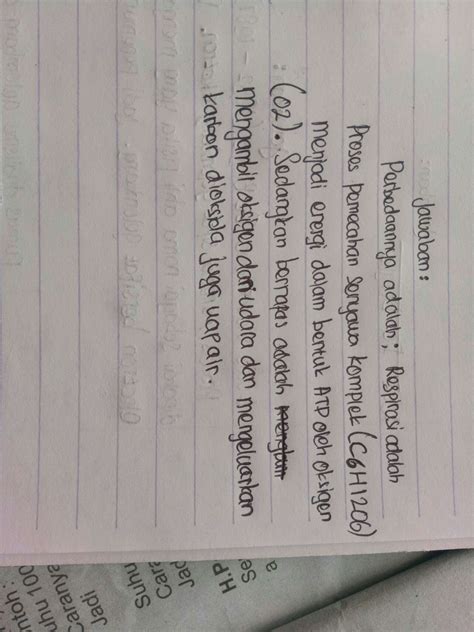 Jawaban:
Perbedaannya adalah; Respirasi adalah
Proses pemecahan senyawa komplek (C6H12O6)
menjadi energi dalam bentuk ATP oleh oksigen
(O2). Sedangkan bernapas adalah
mengambil oksigen dari udara dan mengeluarkan
karbon dioksida juga uap air.
a
Se
H.P
Jad
Cara
Suhu
Jadi
Caranya
uhu 100
ntoh: